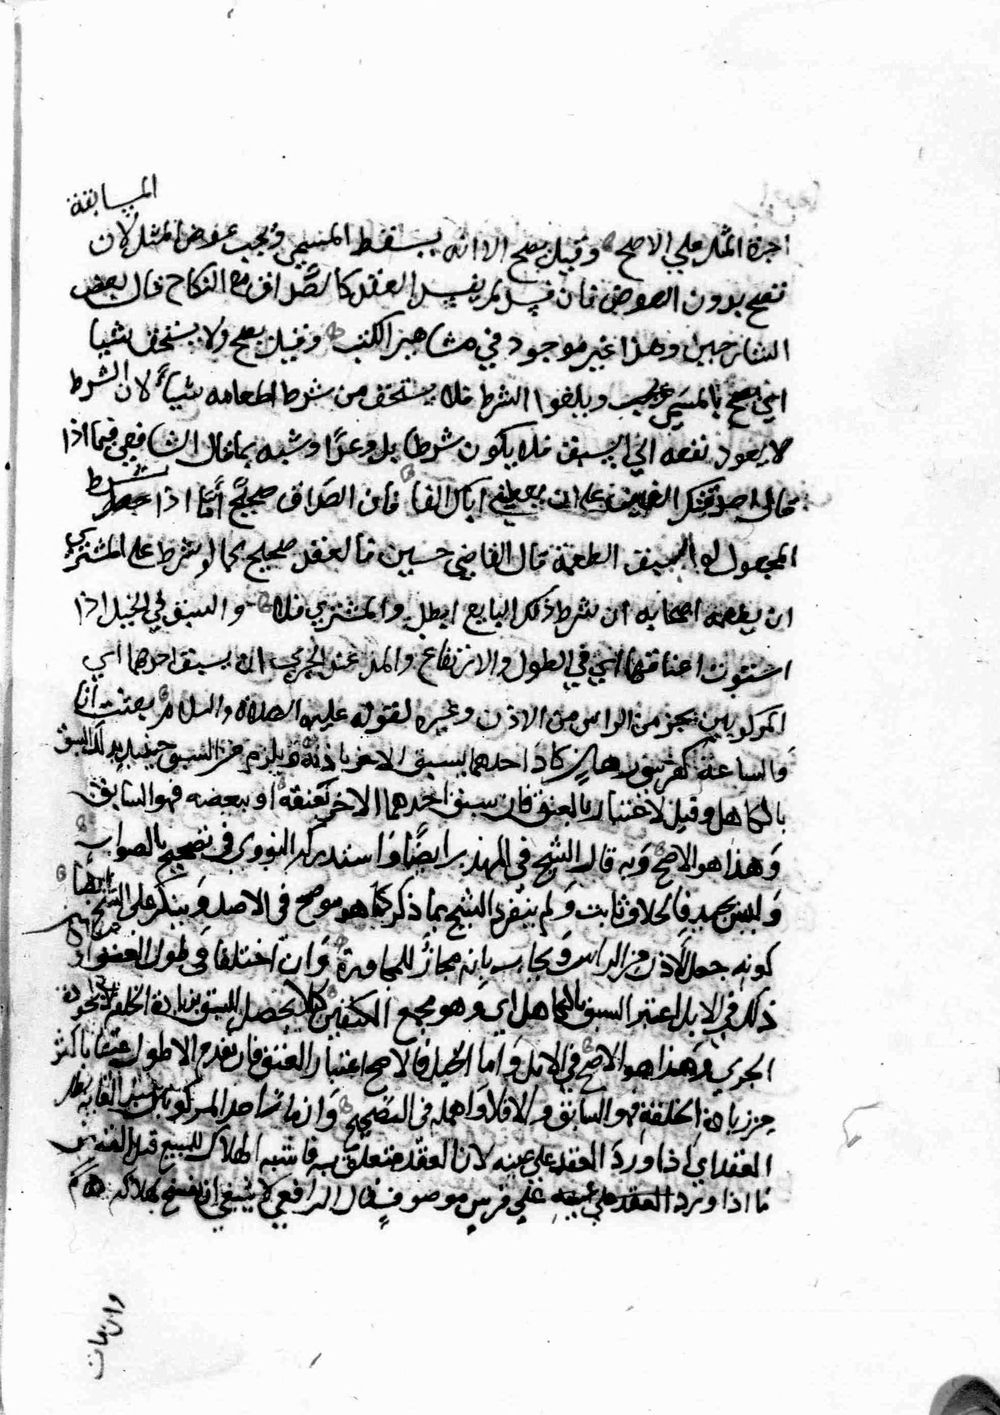 المسابقة
اجرة المثل علي الاصح وقيل يصح الا انه يسقط المسمي ويجب عوض المثل لان
تصح بدون العوض فان فسد لم يفسد العقد كالصداق مع النكاح قال بعض
الشارحين وهذا غير موجود في مشاهير الكتب وقيل يصح ولا يستحق شيا
اي يصح بالمسمي ويلغوا الشرط فلا يستحق من شرط اطعامه شيأ لان الشرط
لا يعود نفعه الي السبق فلا يكون شرطا بل وعدا وشبه بما قال الشافعي فيما اذا
قال اصدقتك الفين علي ان يعطي اباك الفا فان الصداق صحيح أمَّا اذا شرط
المجعول له السبق الطعمة قال القاضي حسين فالعقد صحيح كما لو شرط علي المشتري
ان يطعمه اصحابه ان شرط ذلك البايع ابطل والمشتري فلا والسبق في الخيل اذا
استوت اعناقها اي في الطول والارتفاع والمد عند الجري ان يسبق احدهما اي
المركوبين بجزء من الراس من الاذن وغيره لقوله عليه الصلاة والسلام بعثت أنا
والساعة كفرسي رهان كاد احدهما يسبق الاخر باذنه
بالكاهل وقيل لاعتبار بالعنق فان سبق احدهما الاخر بعنقه او ببعضه فهو السابق
وَهذا هو الاصح وَبه قال الشيخ في المهذب ايضًا وَاستدرك النووي في تصحيح بالصواب
وَليس بجيد فالخلاف ثابت وَلم ينفرد الشيخ بما ذكر كما هو موضح في الاصل وَينكر علي الشيخ ايضا
كونه جعل الاذن من الراس وَيجاب بانه مجاز للمجاورة وَان اختلفا في طول العنق او
ذلك في الابل اعتبر السبق بالكاهل اي وهو مجمع الكتفين لئلا يحصل السبق بزيادة الخلقة لا بجودة
الجري وَهذا هو الاصح في الابل وَاما الخيل فالاصح اعتبار العنق فان تقدم الاطول عنقا باكثر
من زيادة الخلقة فهو السابق والا فلا وَاهمله في التصحيح وَان مات احد المركوبين قبل الغاية بطل
العقد اي اذا وَردَ العقد علي عينه لان العقد متعلق به فاشبه الهلاك للمبيع قبل القبض
فا اذا ورد العقد علي فرس موصوف فقال الرافعي لا ينبغي ان ينفسخ بهلاكه
وان مات